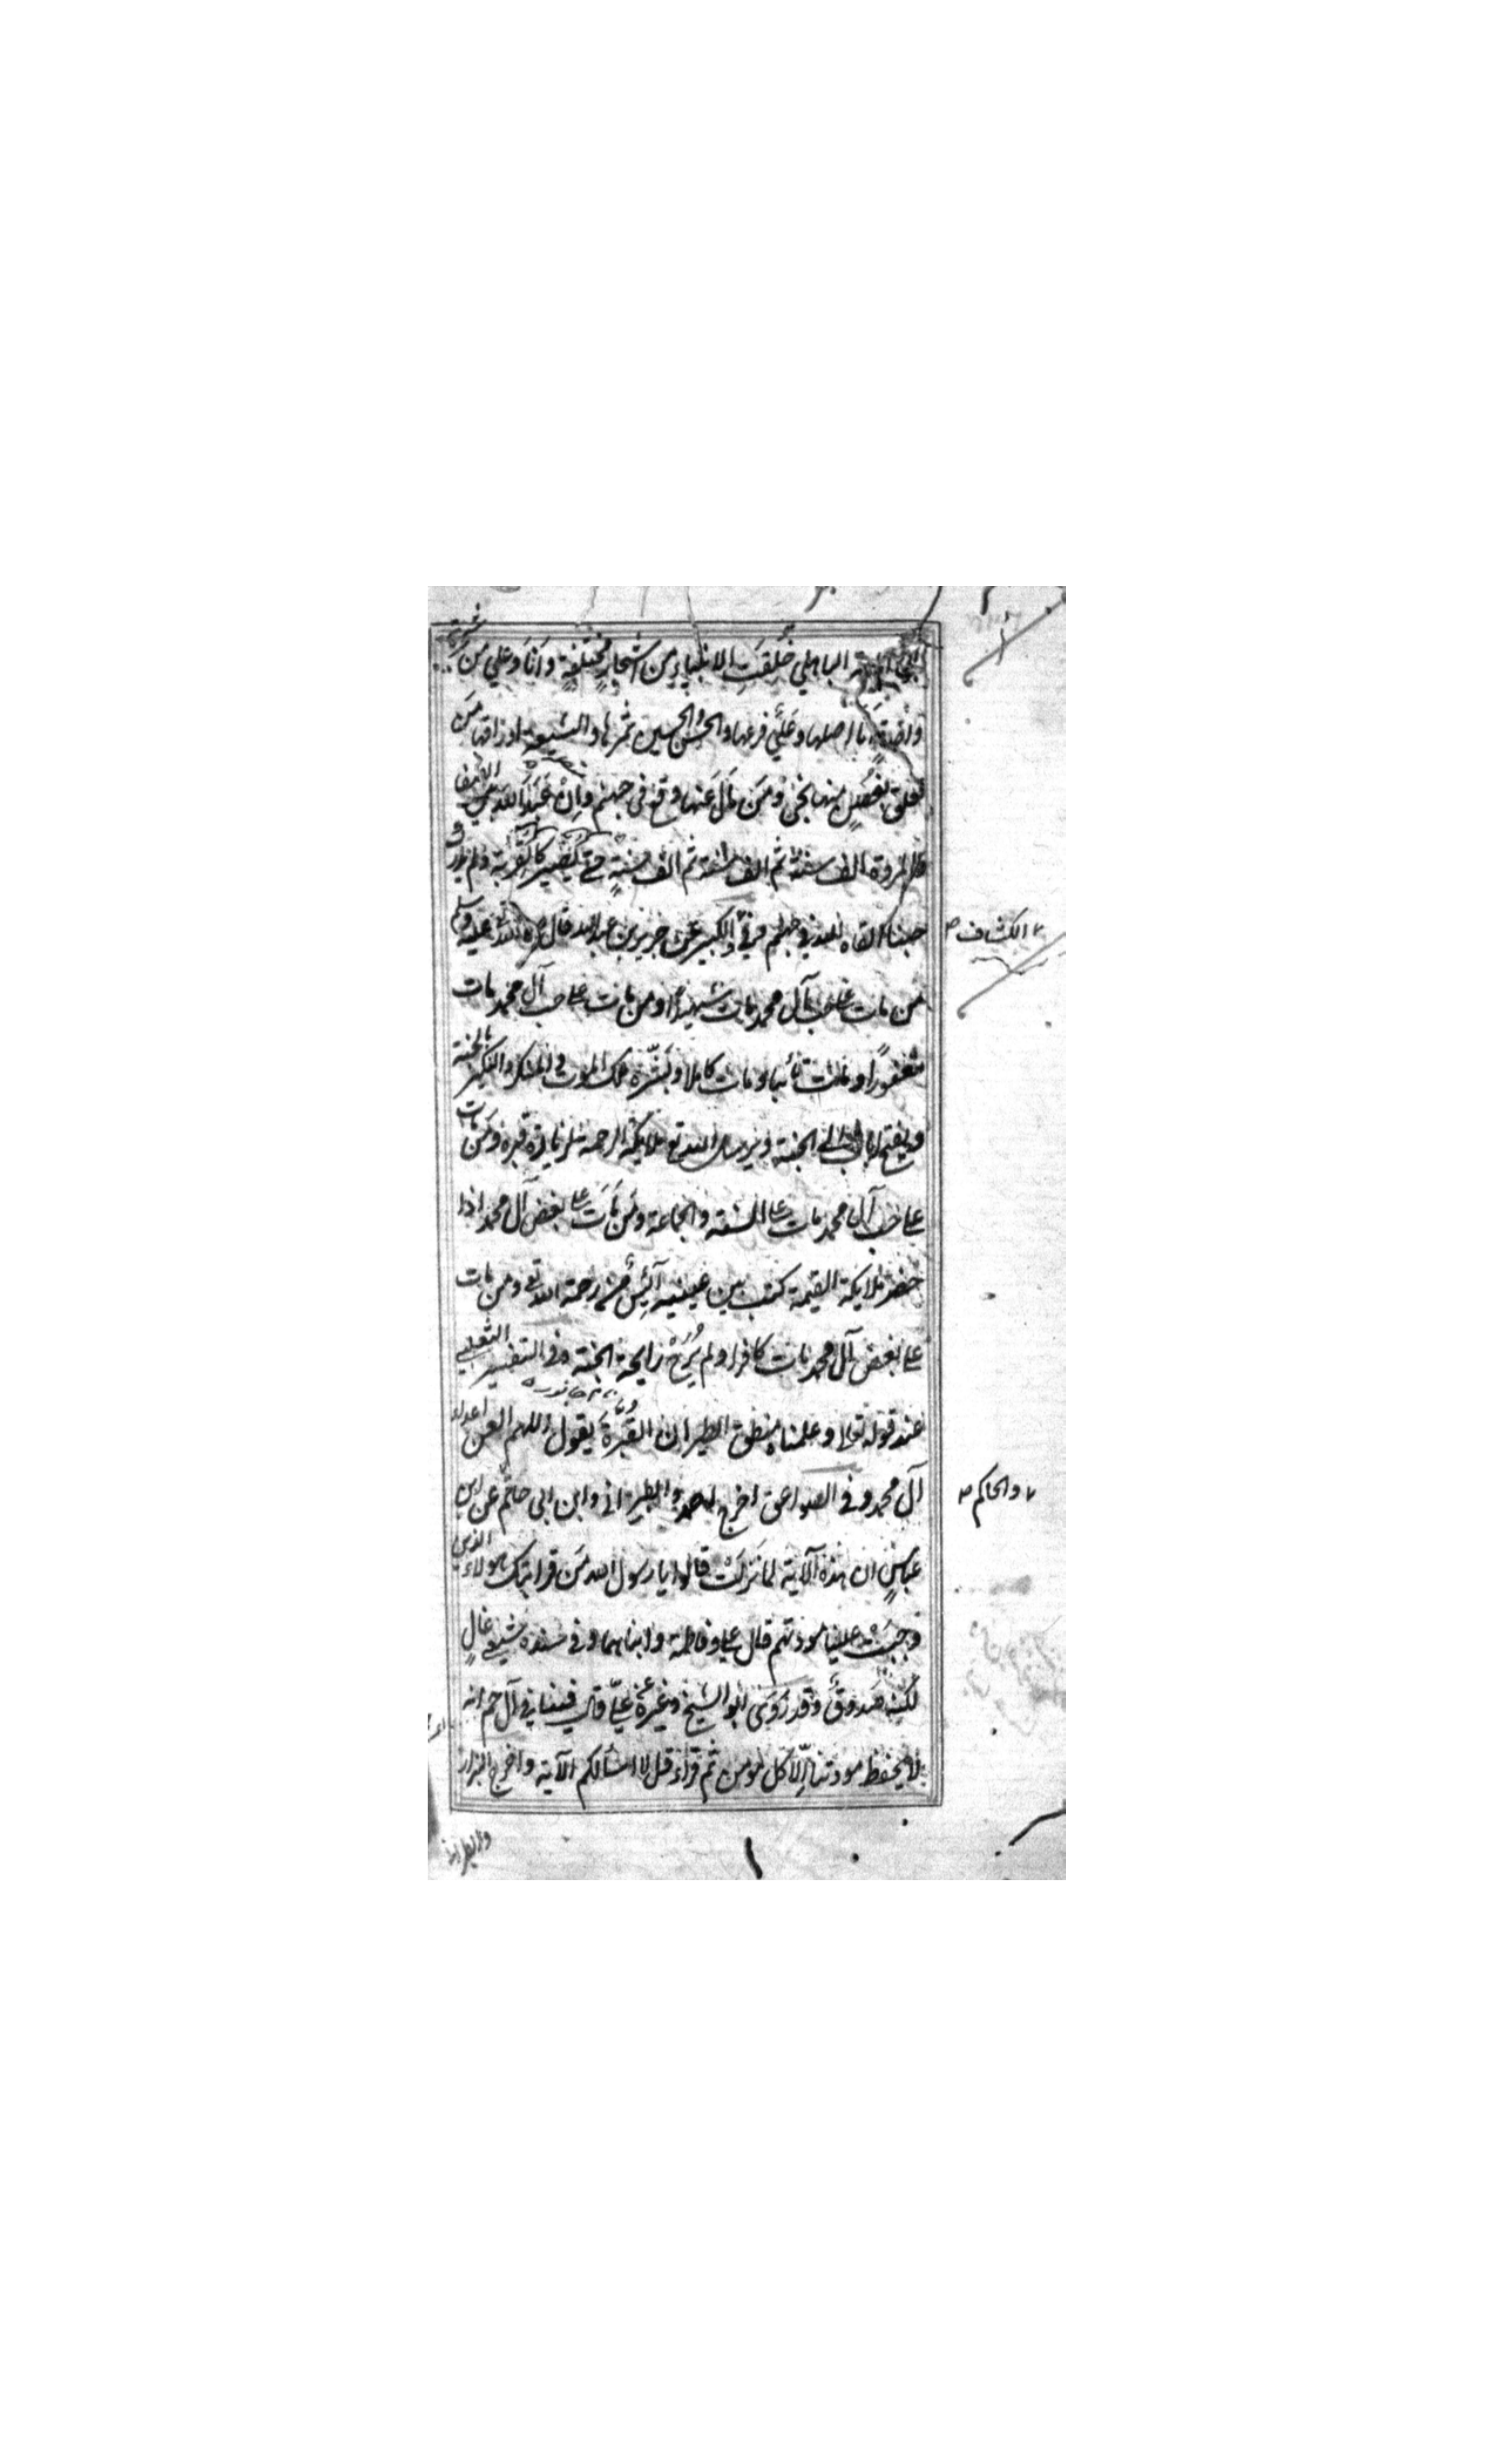 ابي امامة الباهلي خُلِقَتِ الانبياء من اشجارٍ مختلفةٍ وَانَا وَعلي مِن شجرة
واحدةٍ انا اصلها وعَليٌّ فرعها والحسن والحسين ثمرها والشيعة اوراقها مَن
تعلق بغصنٍ منها نجى ومَن مال عنها وقع في جهنم وان عَبَدَ الله بين
المروة الف سنة ثم الف سنة ثم الف سنةٍ حتى يصير كالقربة ولم يدرك
حبنا القاه الله في جهنم وفي الكبير عن جرير بن عبد الله قال صلى الله عليه وسلم
من مات على حب آل محمد مات شهيدا ومن مات على حب آل محمد مات
مغفورًا ومات تائبا ومات كاملا وبَشَّره ملك الموت في المنكر والنكير بالجنة
ويفتح بابا الى الجنة ويرسل الله تع ملايكة الرحمة لزيارة قبره ومَن مات
على حب آل محمد مات على السنة والجماعة ومَن مَاتَ على بغض آل محمد اذا
حضر ملايكة القيمة كتب بين عينيه آئِسٌ من رحمة الله تع ومن مات
على بغض آل محمد مات كافرا ولم يُرَحْ رايحة الجنة وفي التفسير الثعلبي
عند قوله تعالى وعلمنا منطق الطير ان القُبَّرةَ يقول اللهم العن اعداء
آل محمد وفي الصواعق اخرج احمد والطبراني وابن ابي حاتم عن ابن
عباسٍ ان هذه الآية لما نَزَلَتْ قالوا يا رسول الله مَن قرابتك هولاء الذين
وجبَتْ علينا مودتهم قال علي وفاطمة وابناهما وفي سنده شيعي غالٍ
لكنه صَدوقٌ وقد رَوَى ابو الشيخ وغيره عن عليّ قال فينا في آل حم انه
لا يحفظ مودتنا إلّا كل مومن ثم قراء قل لا اسألكم الآية واخرج البزار
والطبراني
الكشاف ص
والحاكم ص